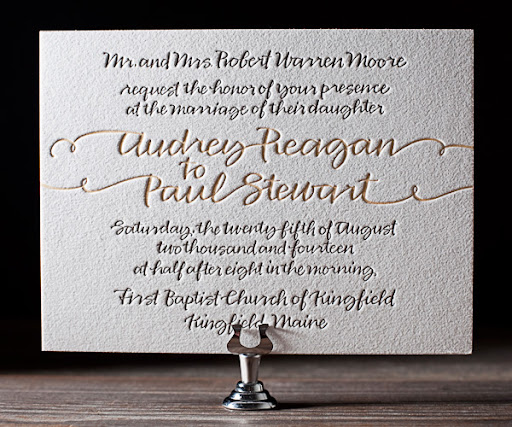 Mr. and Mrs. Robert Warren Moore
request the honor of your presence
at the marriage of their daughter
Audrey Reagan
to
Paul Stewart
Saturday, the twenty-fifth of August
two thousand and fourteen
at half after eight in the morning,
First Baptist Church of Kingfield
Kingfield, Maine